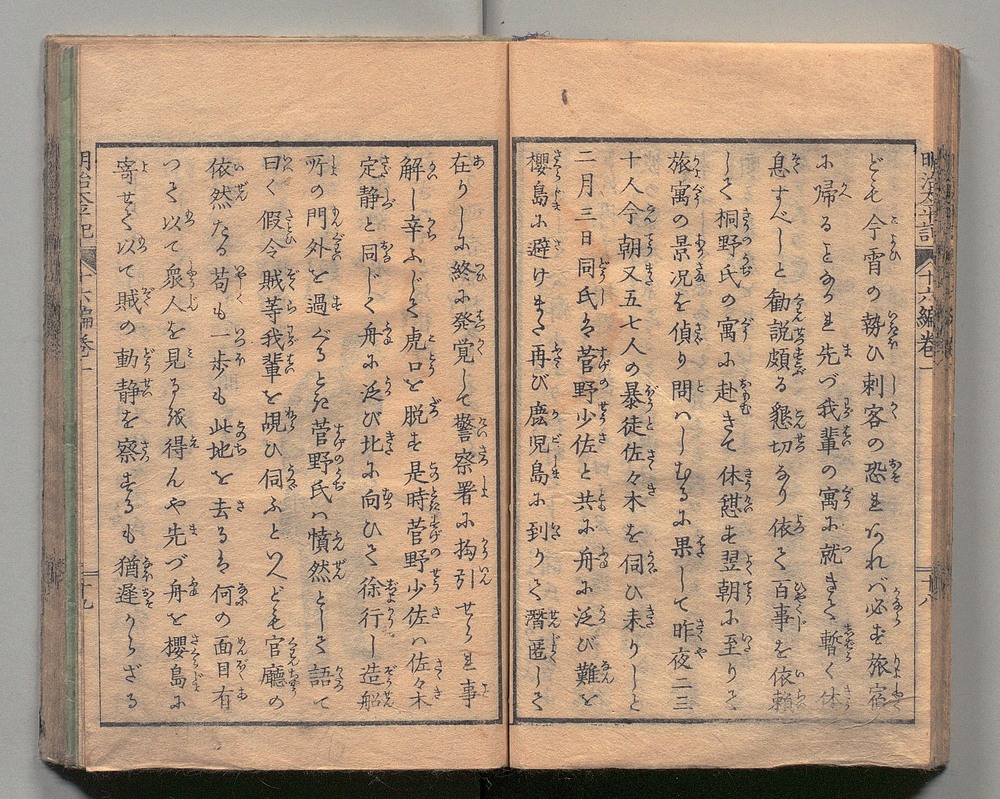 明治太平記
十六編巻一
十八
ども今宵の勢ひ刺客の恐れなれバ必ず旅宿
に帰ることなかれ先づ我輩の寓に就きて暫く休
息すべしと勧説頗る懇切なり依て百事を依頼
して桐野氏の寓に赴きて休憩す翌朝に至りて
旅寓の景况を偵り問ハしむるに果して昨夜二三
十人今朝又五七人の暴徒佐々木を伺ひ来りしと
二月三日同氏は菅野少佐と共に舟に泛び難を
櫻島に避けまた再び鹿児島に到りて潜匿して
在りしに終に発覚して警察署に拘引せられ事
解し辛ふじて虎口を脱す是時菅野少佐ハ佐々木
定静と同じく舟に泛び北に向ひて徐行し造船
所の門外を過ぐるとき菅野氏ハ憤然として語て
曰く假令賊等我輩を覗ひ伺ふといへども官廳の
依然たる苟も一歩も此地を去るは何の面目有
つて以て衆人を見るを得んや先づ舟を櫻島に
寄せて以て賊の動静を察するも猶遅からざる
明治太平記
十六編巻一
十九